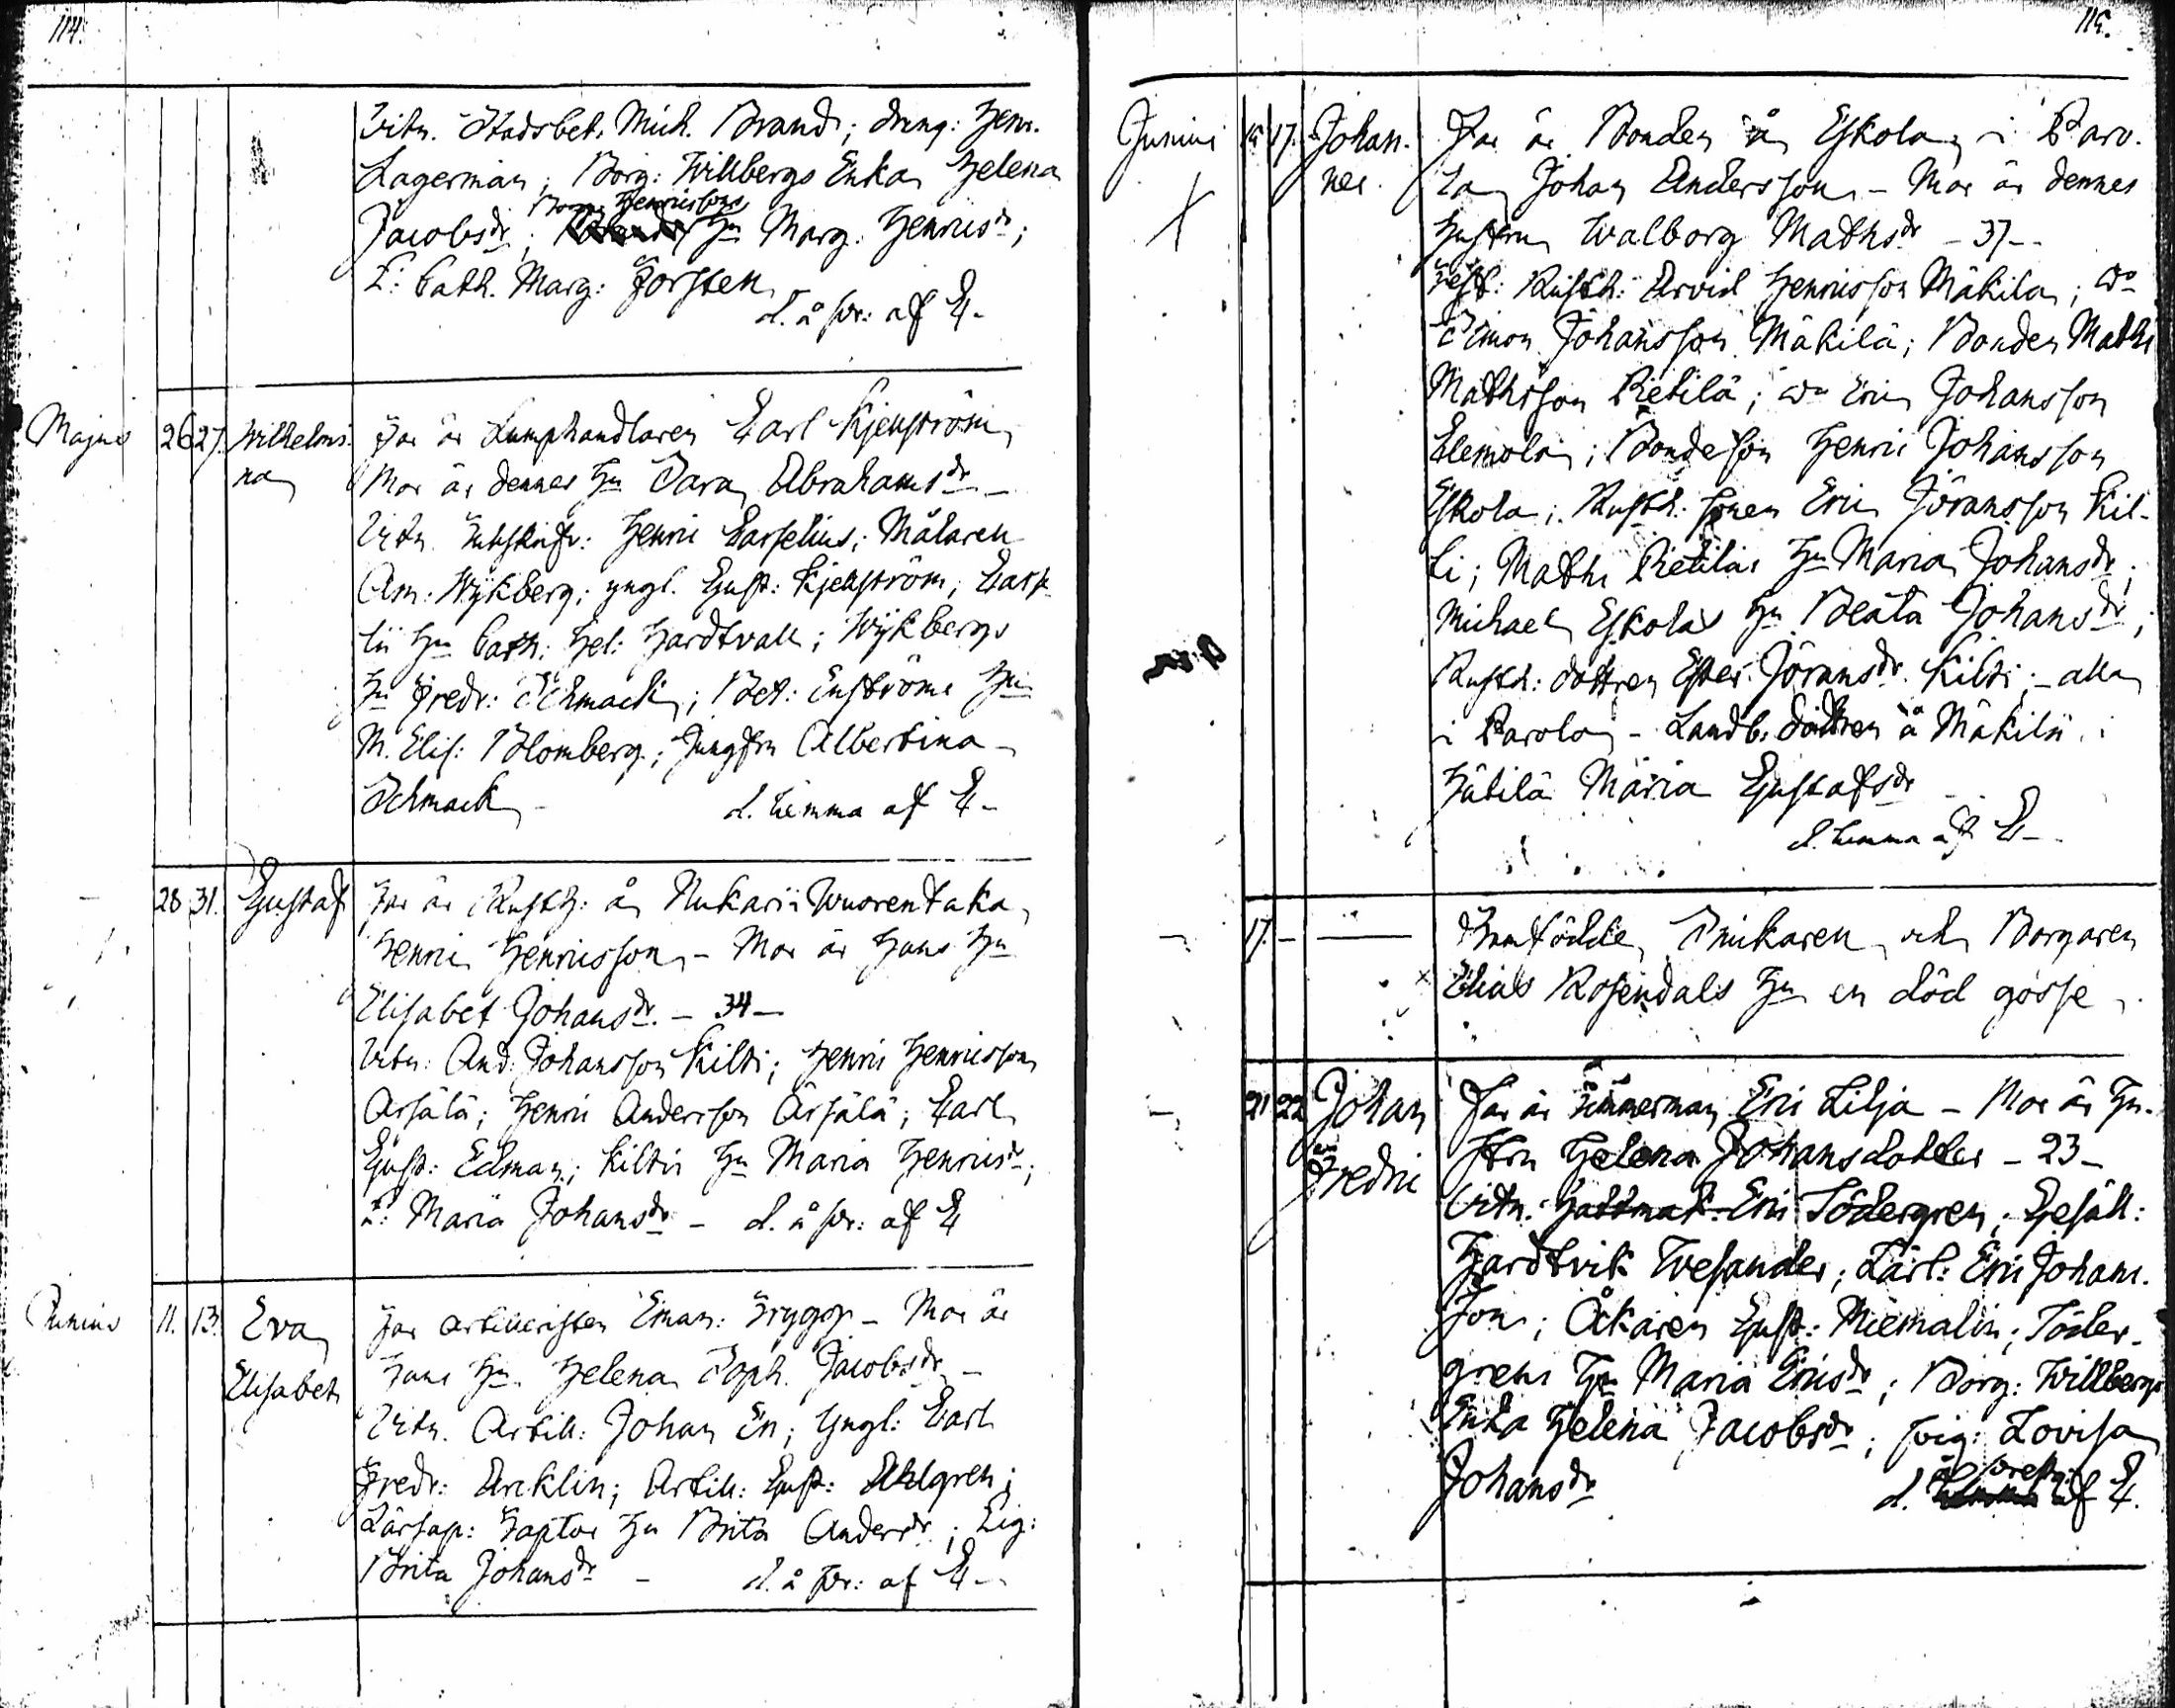 114.
Vitn. Stadsbet. Mich. Brand; dräng: Henr.
Lagerman; Borg: Willbergs Enka Helena
Henricssons
Jacobsdr; Hu Marg. Henricsdr;
P: Cath. Marg: Forsten
d. å pr: af E.
Majus 26 27. Wilhelmi-
na
Far är Lumphandlaren Carl Kjenström
Mor är dennes Hu Sara Abrahamsdr –
Vitn. Henric Carselius; Målaren
Am. Wykberg; yngl. Gust: Kjenström; Carse-
lii Hu Cath: Hel: Hardtvall; Wykbergs
Hu Fredr: Schmack; Bet: Enströms Hu
M. Elis: Blomberg; Jungfru Albertina
Schmack – d. hemma af E –
28 31. Gustaf
Far är Rusth: å Nukari Wuorentaka
Henric Henricsson – Mor är Hans Hu
Elisabet Johansdr. – 34 –
Vitn: And. Johansson Kilti; Henric Henricsson
Arsälä; Henric Andersson Arsälä; Carl
Gust: Edman; Kiltis Hu Maria Henricsdr;
P: Maria Johansdr – d. å pr: af E
Junius 11. 13. Eva
Elisabet
Far Artilleristen Eman: Trygg – Mor är
Hans Hu Helena Soph. Jacobsdr –
Vitn. Artill: Johan En; Yngl: Carl
Fredr: Ancklin; Artill: Gust: Ahlgren;
Hu Brita Andersdr; Pig:
Brita Johansdr – d. å pr: af E –
115.
Junius 15 17. Johan-
nes.
Far är Bonden å Eskola i Paro-
la Johan Andersson – Mor är dennes
Hustru Walborg Mathsdr – 37 –
Test: Rusth: Arvid Henricsson Mäkilä; do
Simon Johansson Mäkilä; Bonden Maths
Mathsson Pietilä; do Eric Johansson
Clemola; Bondeson Henric Johansson
Eskola; Rusth: sonen Eric Jöransson Kil-
ti; Maths Pietiläs Hu Maria Johansdr;
Michael Eskolas Hu Beata Johansdr;
Rusth: dottren Ester Jöransdr Kilti; – alla
i Parola – Landb: dottren å Mäkilä i
Hätilä Maria Gustafsdr
d. hemma af E –
17. – Framfödde Snickaren och Borgaren
Elias Rosendals Hu en död gosse
21 22 Johan
Fredric
Far är Timmerman Eric Lilja – Mor är Hu-
stru Helena Johansdotter – 23 –
Vitn: Hattmak: Eric Södergren; Gesäll:
Hardtvik Wesander; Lärl: Eric Johans-
son; Åkaren Gust: Niemalin; Söder-
grens Hu Maria Ericsdr; Borg: Willbergs
Enka Helena Jacobsdr; pig: Lovisa
Johansdr d. af E.